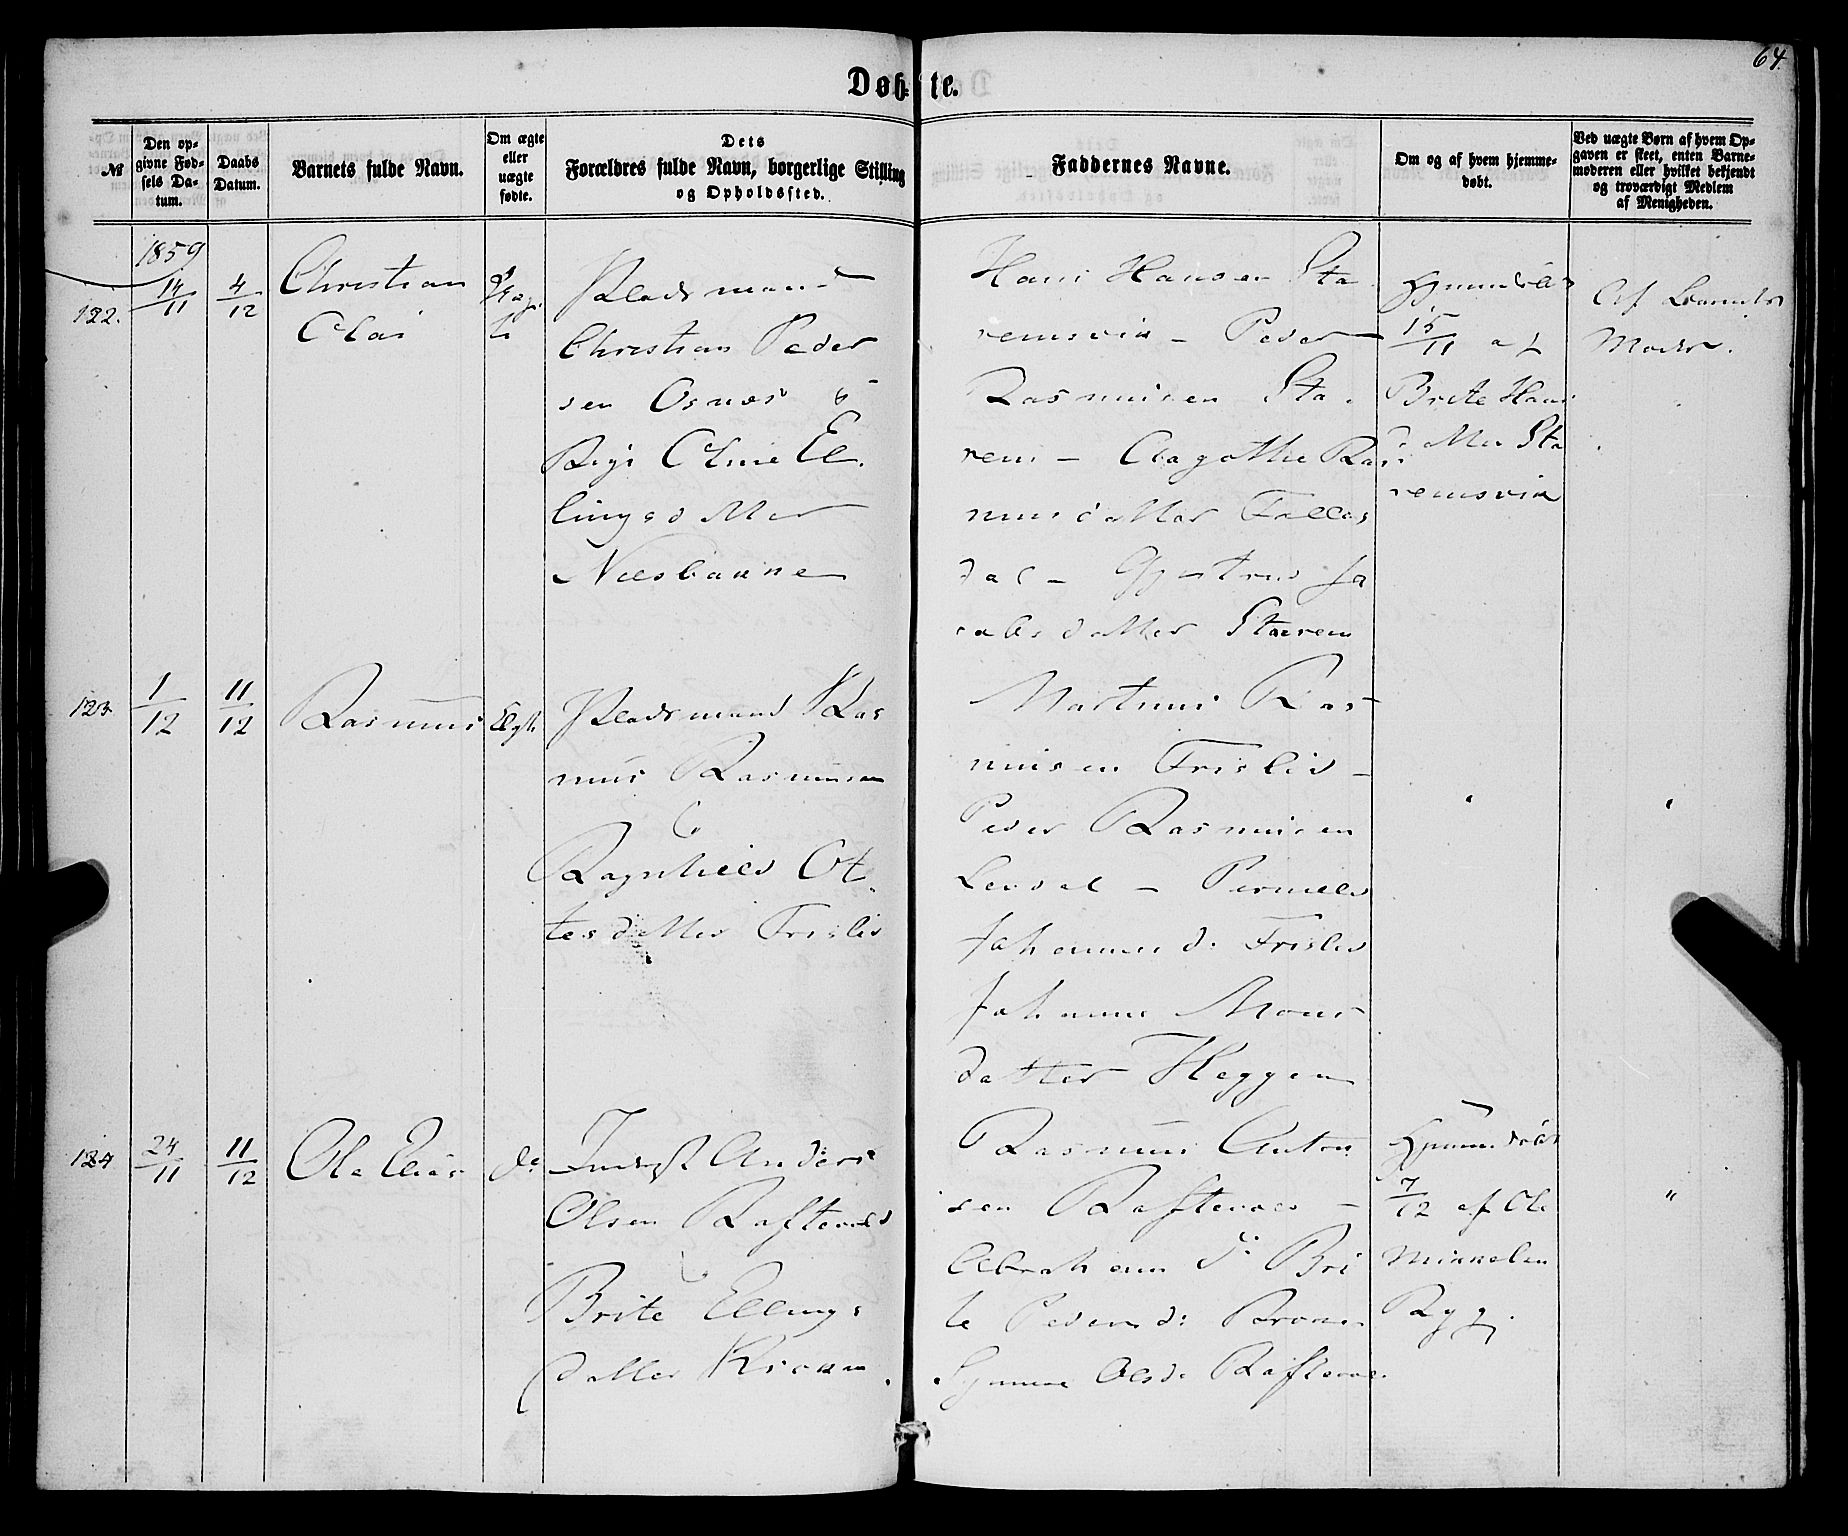 64.
Døbte.
№
Den op-
givne Fød-
sels Da-
tum.
Daabs
Datum.
Barnets fulde Navn.
Om ægte
eller
uægte
fødte.
Dets
Forældres fulde Navn, borgerlige Stilling
og Opholdssted.
Faddernes Navne.
Om og af hvem hjemme-
døbt.
Ved uægte Børn af hvem Op-
gaven er skeet, enten Barne-
moderen eller hvilket bekjendt
og troværdigt Medlem
af Menigheden.
1859
122.
14/11
4/12
Christian
Olai
Uæg
te
Pladsmand
Christian Peder
sen Osnæs &
Pige Oline El
lingsdatter
Neesbakken
Hans Hansen Sta
vemsvik - Peder
Rasmusen Sta
vem - Aagothe Ras
musdatter
dal - Gjertrud Ja
cobsdatter Stavem
Hjemmedøbt
15/11 af
Brite Hans
datter Sta
vemsvik
Af Barnets
Moder.
123
1/12
11/12
Rasmus
Ægte
Pladsmand Ras
mus Rasmusen
&
Ragnhild Ot
tesdatter Frislid
Martinus Ras
musen Frislid -
Peder Rasmusen
- Pernille
Johannesd: Frislid
Johanne Mons
datter Heggen
"
"
124
24/11
11/12
Ole Elias
do
Inderst Anders
Olsen Raftenæs
&
Brite Ellings
datter
Rasmus Anton
sen Raftenæs -
Abraham d: Bri
te Pedersd:
Olsd: Raftenæs
Hjemmedøbt
7/12 af Ole
Mikkelsen
Ryg.
"